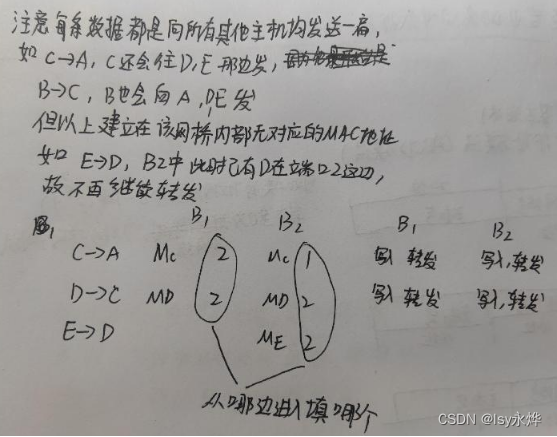 注意每条数据都是向所有其他主机均发送一遍,
如 C→A, C还会往D,E那边发,
B→C, B也会向A,D,E发
但以上建立在该网桥内部无对应的MAC地址
如 E→D, B2中此时已有D在立端口2这边,
故不再继续转发
B1 B2 B1 B2
C→A Mc 2 Mc 1 写入 转发 写入,转发
D→C MD 2 MD 2 写入 转发 写入,转发
E→D ME 2
从哪边进入填哪个
CSDN @lsy永烨